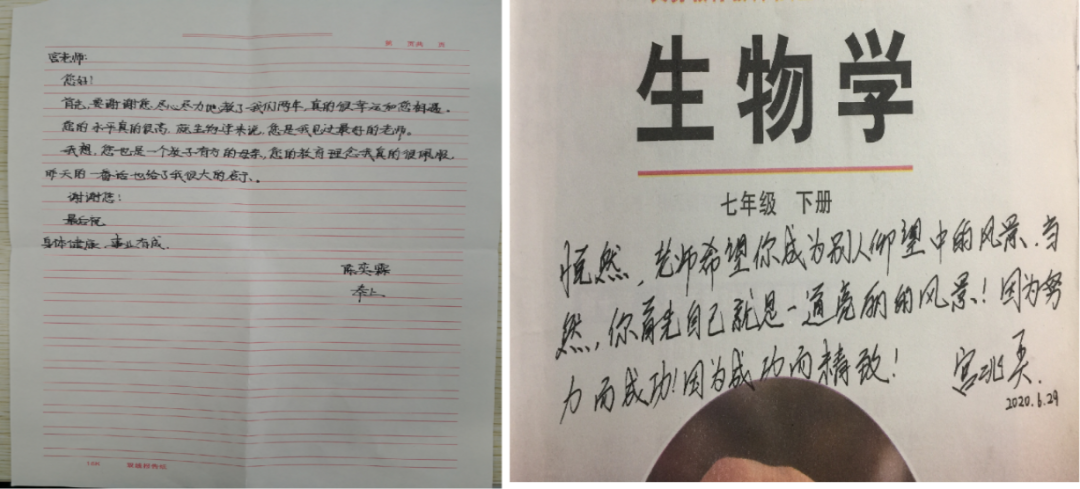 第 页共 页
宫老师:
您好!
首先,要谢谢您尽心尽力地教了我们两年,真的很幸运和您相遇。
您的水平真的很高,就生物课来说,您是我见过最好的老师。
我想,您也是一个教子有方的母亲,您的教育理念我真的很佩服,
昨天的一番话也给了我很大的启示。
谢谢您!
最后祝
身体健康、事业有成.
陈奕霖
奉上
生物学
七年级 下册
恍然,老师希望你成为别人仰望中的风景.当
然,你首先自己就是一道亮丽的风景!因为努
力而成功!因为成功而精致!
宫
2020.6.29